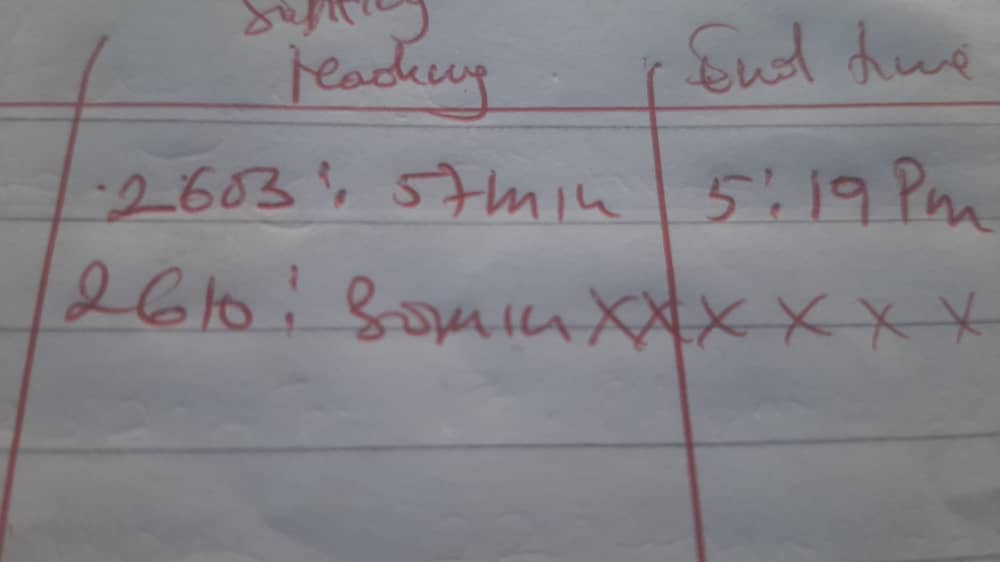 reading End time
2603: 57min 5:19 Pm
2610: 30min X X X X X X